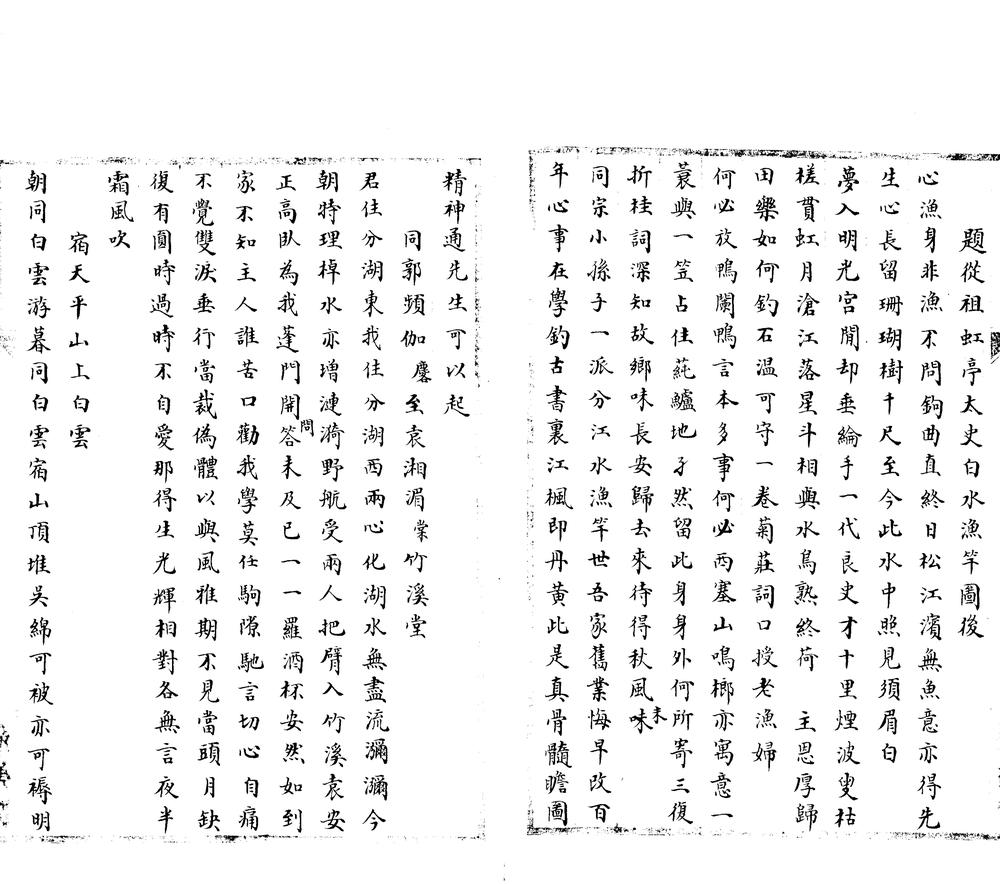 題從祖虹亭太史白水漁竿圖後
心漁身非漁不問鉤曲直終日松江濱無魚意亦得先
生心長留珊瑚樹千尺至今此水中照見須眉白
夢入明光宮閒却垂綸手一代良史才十里煙波叟枯
槎貫虹月滄江落星斗相與水鳥熟終荷　主恩厚歸
田樂如何釣石溫可守一卷菊莊詞口授老漁婦
何必放鴨闌鴨言本多事何必西塞山鳴榔亦寓意一
蓑與一笠占住蓴鱸地孑然留此身身外何所寄三復
折桂詞深知故鄉味長安歸去來待得秋風味末
同宗小孫子一派分江水漁竿世吾家舊業悔早改百
年心事在學釣古書裏江楓即丹黃此是真骨髓瞻圖
精神通先生可以起
同郭頻伽麐至袁湘湄棠竹溪堂
君住分湖東我住分湖西兩心化湖水無盡流瀰瀰今
朝特理棹水亦增漣漪野航受兩人把臂入竹溪袁安
正高臥為我蓬門開答問未及已一一羅酒杯安然如到
家不知主人誰苦口勸我學莫任駒隙馳言切心自痛
不覺雙淚垂行當裁偽體以與風雅期不見當頭月缺
復有圓時過時不自愛那得生光輝相對各無言夜半
霜風吹
宿天平山上白雲
朝同白雲游暮同白雲宿山頂堆吳綿可被亦可褥明